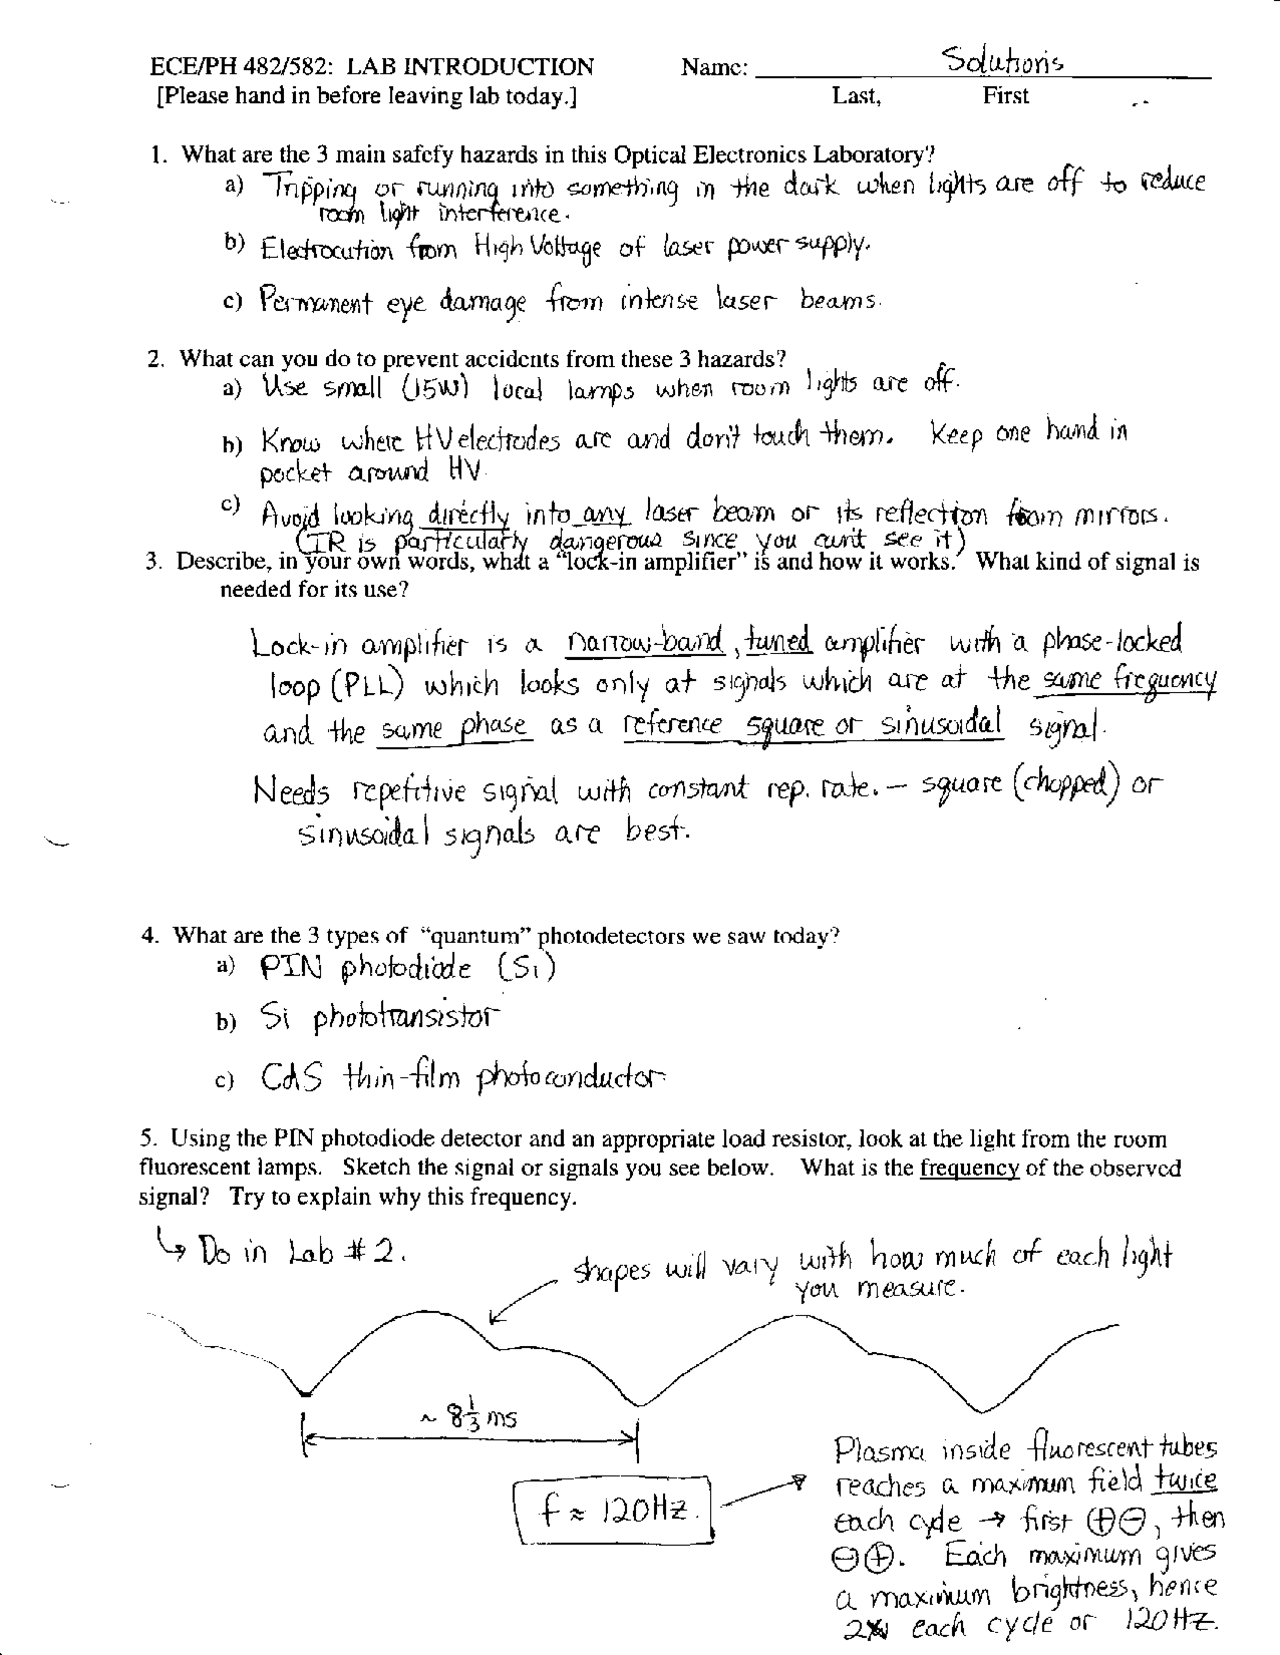 ECE/PH 482/582: LAB INTRODUCTION Name: Solutions
[Please hand in before leaving lab today.] Last, First
1. What are the 3 main safety hazards in this Optical Electronics Laboratory?
a) Tripping or running into something in the dark when lights are off to reduce
room light interference.
b) Electrocution from High Voltage of laser power supply.
c) Permanent eye damage from intense laser beams.
2. What can you do to prevent accidents from these 3 hazards?
a) Use small (15W) local lamps when room lights are off.
b) Know where HV electrodes are and don't touch them. Keep one hand in
pocket around HV.
c) Avoid looking directly into any laser beam or its reflection from mirrors.
(IR is particularly dangerous since you can't see it)
3. Describe, in your own words, what a "lock-in amplifier" is and how it works. What kind of signal is
needed for its use?
Lock-in amplifier is a narrow-band, tuned amplifier with a phase-locked
loop (PLL) which looks only at signals which are at the same frequency
and the same phase as a reference square or sinusoidal signal.
Needs repetitive signal with constant rep. rate. — square (chopped) or
sinusoidal signals are best.
4. What are the 3 types of "quantum" photodetectors we saw today?
a) PIN photodiode (Si)
b) Si phototransistor
c) CdS thin-film photoconductor
5. Using the PIN photodiode detector and an appropriate load resistor, look at the light from the room
fluorescent lamps. Sketch the signal or signals you see below. What is the frequency of the observed
signal? Try to explain why this frequency.
↳ Do in Lab #2.
shapes will vary with how much of each light
you measure.
~ 8 1/3 ms
f ≈ 120Hz.
Plasma inside fluorescent tubes
reaches a maximum field twice
each cycle → first ⊕⊖, then
⊖⊕. Each maximum gives
a maximum brightness, hence
2x each cycle or 120Hz.